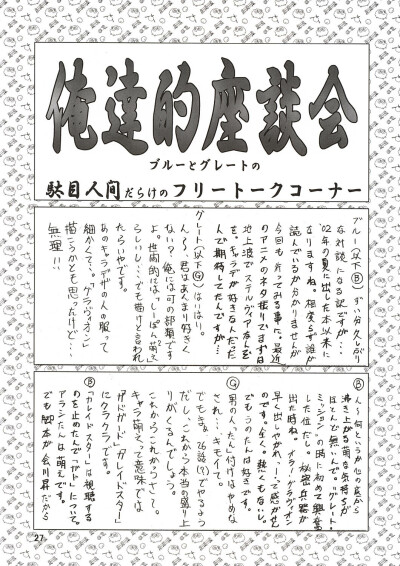 俺達的座談会
ブルーとグレートの
駄目人間だらけのフリートークコーナー
ブルー(以下Ⓑ)ずい分久しぶり
な対談になる訳ですが…
02年の夏に出した本以来に
なりますね。相変らず誰が
読んでいるか分かりませんが
今回も
やってみる事に。最近
のアニメのネタ振りですが
地上波でステルヴィアなんど
を。キャラデが好きなんだった
んで期待してたんですが…
グレート(以下Ⓖ)はいはい。
ん～、君はあんまり好きく
ない？俺には可の部類です
よ。世間的には、しーぽん萌え
らしいし…でも描けと言われ
たらいやです。
あのキャラデザの人の服って
細かくて…。グラヴィオン
描こうかとも思ったけど…
無理!!
Ⓑ 人～何というか心の底から
沸き上がる萌な気持ちが
ほとんど無いんで。「グレート
ミッション」の時に初めて興奮
した位だし。
出た時ね。
秘密兵器が
早く出しやがれ!!って感がせ
のです。全く、熱くもない。
でもうのたんは好きです。
Ⓖ 男の人に「たん」付けはやめな
され…。キモイで。
でもさぁ、26話(?)でやるよう
だし、これから本当の盛り上
りがくるんでしょう。
これからっこれからってさ。
キャラ萌えって意味では
「ガドガード」「カレイドスター」
にクラクラです。
Ⓑ 「カレイドスター」は視聴する
のを止めたんで「ガド」について。
アラシたんは萌えです。
でも脚本が會川昇だから
27